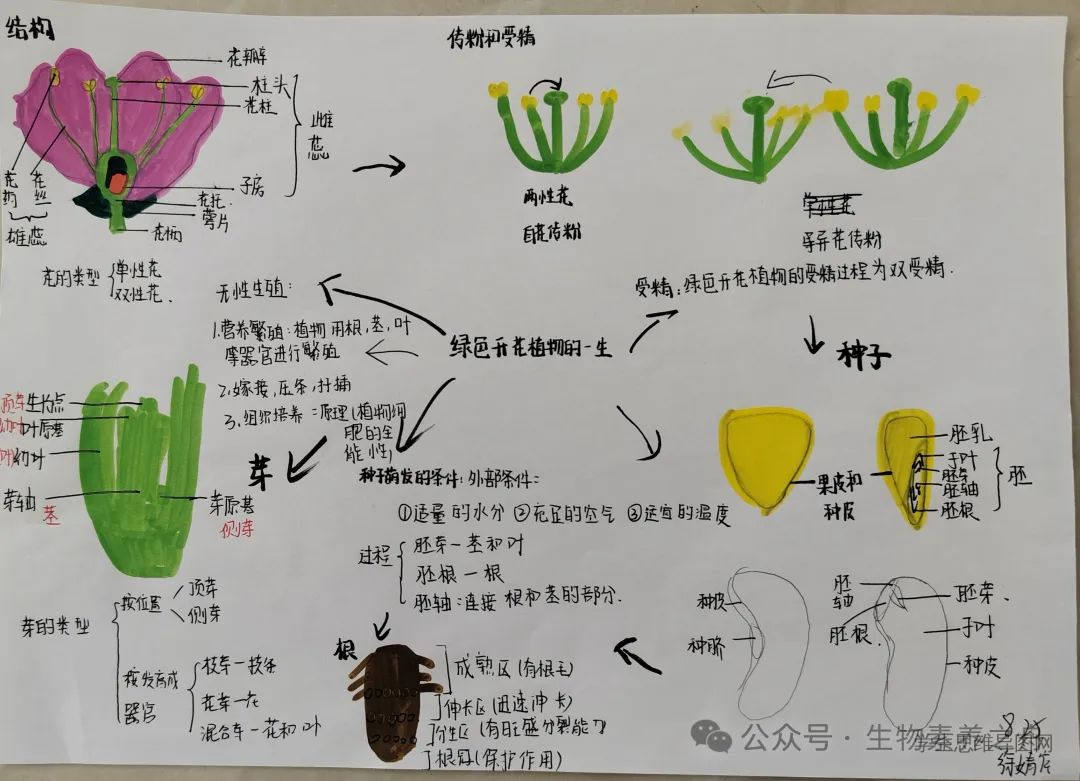 结构
花瓣
柱头
花柱
雌蕊
子房
花药
花丝
雄蕊
花托
萼片
花柄
花的类型
单性花
双性花、
传粉和受精
两性花
自花传粉
异花传粉
受精：绿色开花植物的受精过程为双受精.
绿色开花植物的一生
无性生殖：
1.营养繁殖：植物用根，茎，叶
等器官进行繁殖
2.嫁接，压条，扦插
3.组织培养：原理（植物细
胞的全
能性）
种子
果皮和
种皮
胚乳
子叶
胚芽
胚轴
胚根
胚
种皮
种脐
胚轴
胚根
胚芽.
子叶
种皮
种子萌发的条件：外部条件：
①适量的水分 ②充足的空气 ③适宜的温度
过程
胚芽—茎和叶
胚根—根
胚轴：连接根和茎的部分.
芽
顶芽 生长点
幼叶 叶原基
叶 幼叶
芽轴
茎
芽原基
侧芽
芽的类型
按位置
顶芽
侧芽
按发育成
器官
枝芽—枝条
花芽—花
混合芽—花和叶
根
成熟区（有根毛）
伸长区（迅速伸长）
分生区（有旺盛分裂能力）
根冠（保护作用）
公众号·生物素养
思维导图网